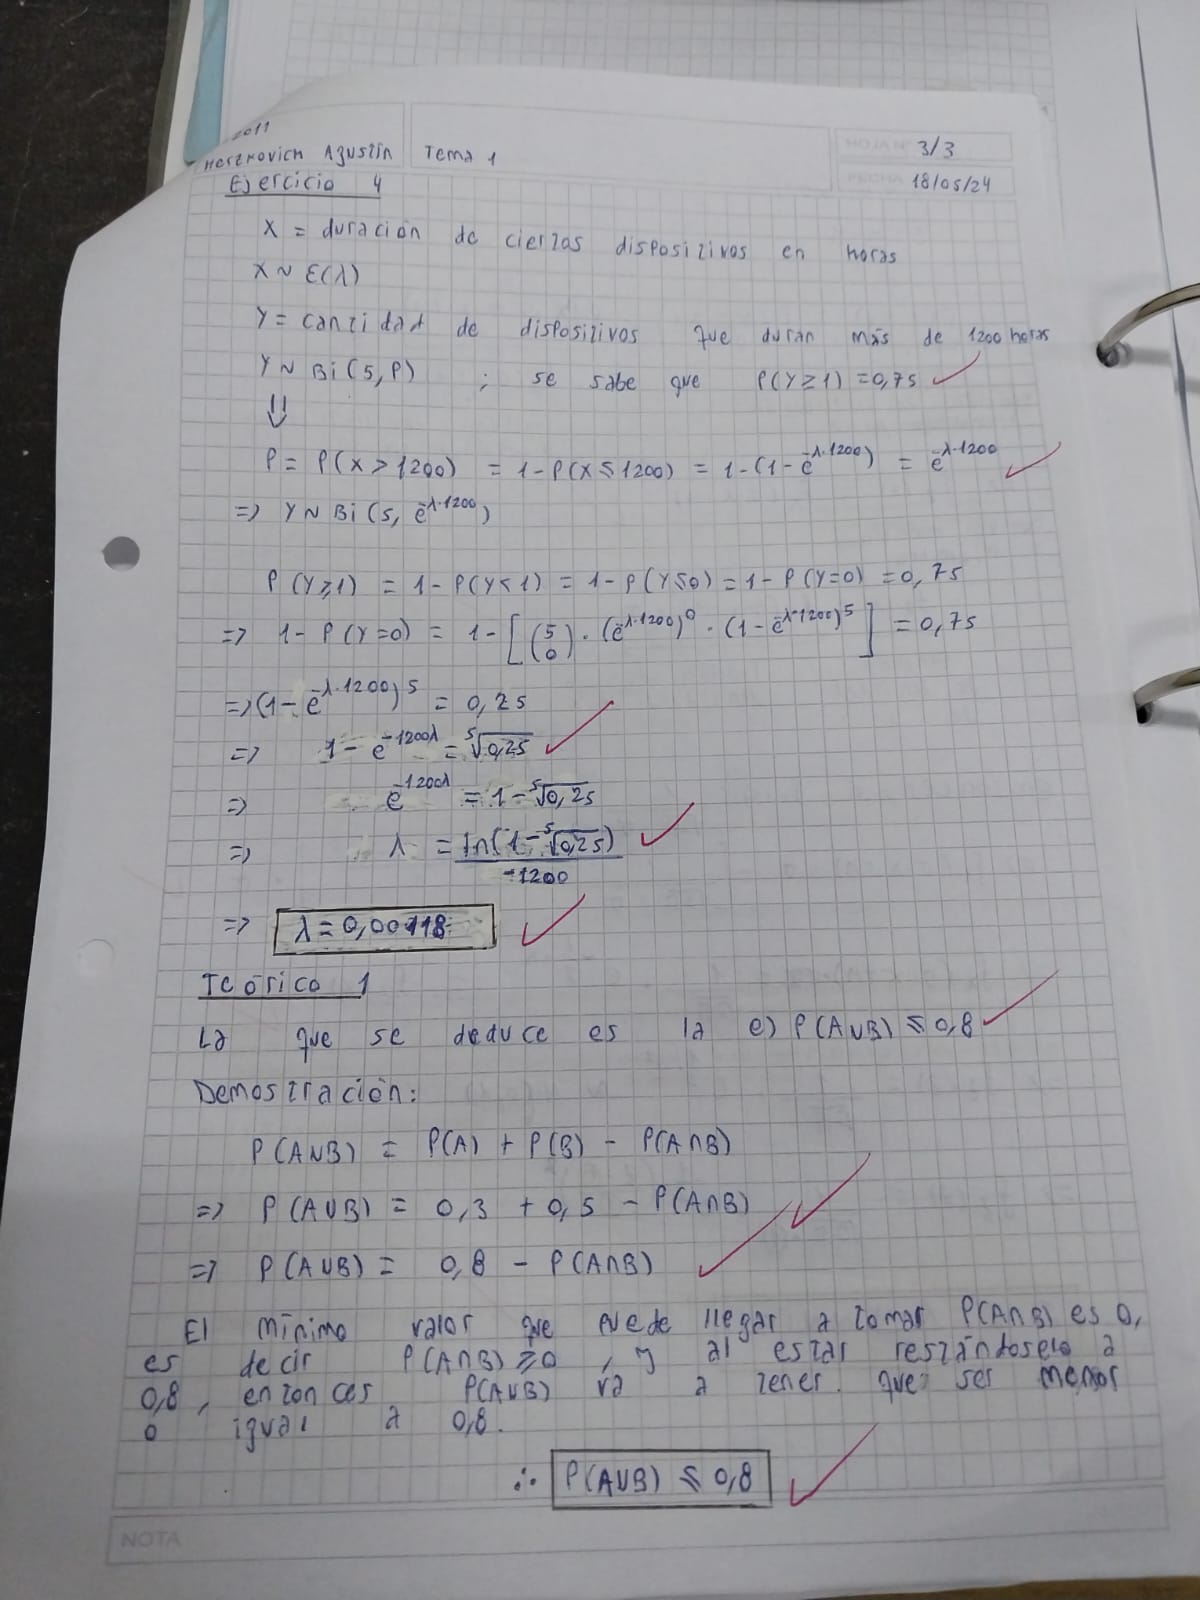 2011
Agustín
Tema 1
HOJA Nº 3/3
FECHA 18/05/24
Ejercicio 4
X = duración de ciertos dispositivos en horas
X ~ ε(λ)
Y = cantidad de dispositivos que duran más de 1200 horas
Y ~ Bi(5, P) ; se sabe que P(Y≥1) = 0,75
⇓
P = P(X > 1200) = 1 - P(X ≤ 1200) = 1 - (1 - e^{-λ·1200}) = e^{-λ·1200}
=> Y ~ Bi(5, e^{-λ·1200})
P(Y≥1) = 1 - P(Y<1) = 1 - P(Y≤0) = 1 - P(Y=0) = 0,75
=> 1 - P(Y=0) = 1 - [(5 0) · (e^{-λ·1200})^0 · (1 - e^{-λ·1200})^5] = 0,75
=> (1 - e^{-λ·1200})^5 = 0,25
=> 1 - e^{-1200λ} = ⁵√0,25
=> e^{-1200λ} = 1 - ⁵√0,25
=> λ = ln(1 - ⁵√0,25) / -1200
=> λ = 0,00118
Teórico 1
La que se deduce es la e) P(A∪B) ≤ 0,8
Demostración:
P(A∪B) = P(A) + P(B) - P(A∩B)
=> P(A∪B) = 0,3 + 0,5 - P(A∩B)
=> P(A∪B) = 0,8 - P(A∩B)
El mínimo valor que puede llegar a tomar P(A∩B) es 0,
es decir P(A∩B) ≥ 0, y al estar restándoselo a
0,8, entonces P(A∪B) va a tener que ser menor
o igual a 0,8.
∴ P(A∪B) ≤ 0,8
NOTA